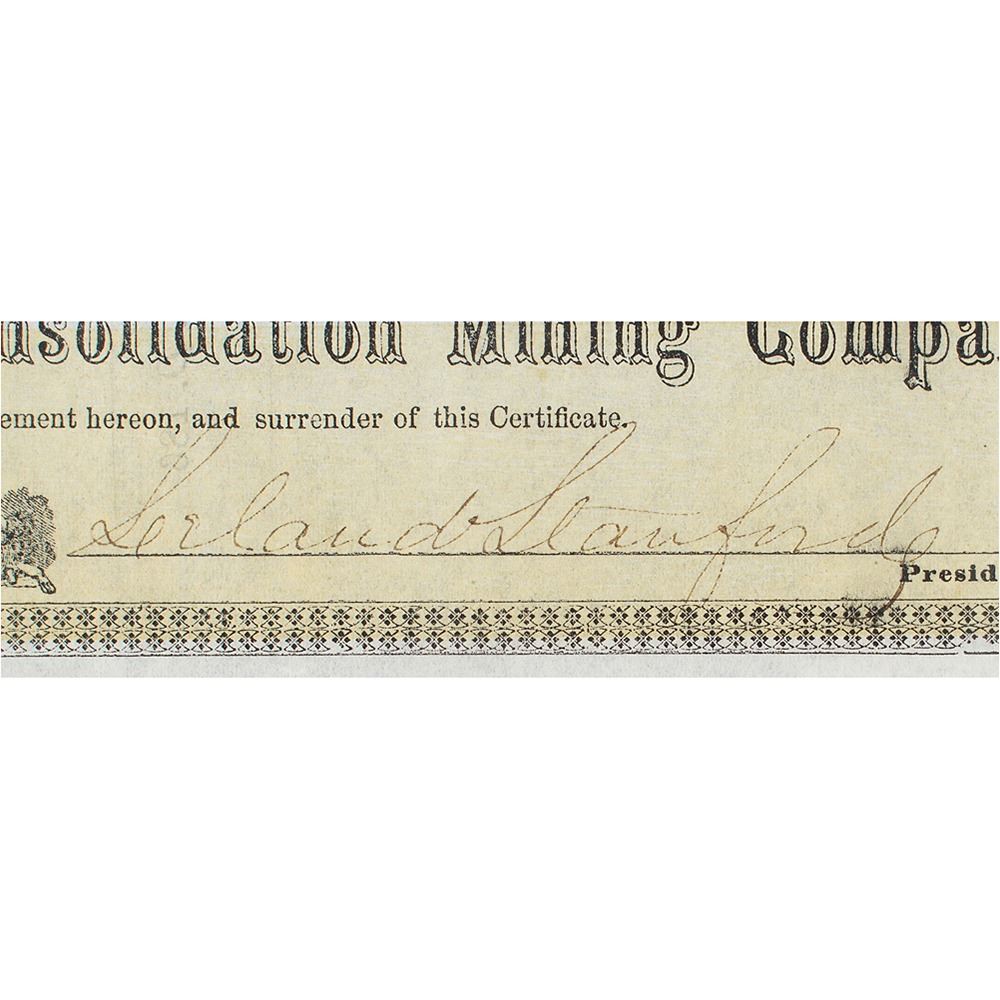 nsolidation Mining Compa
ement hereon, and surrender of this Certificate.
Leland Stanford
Presid